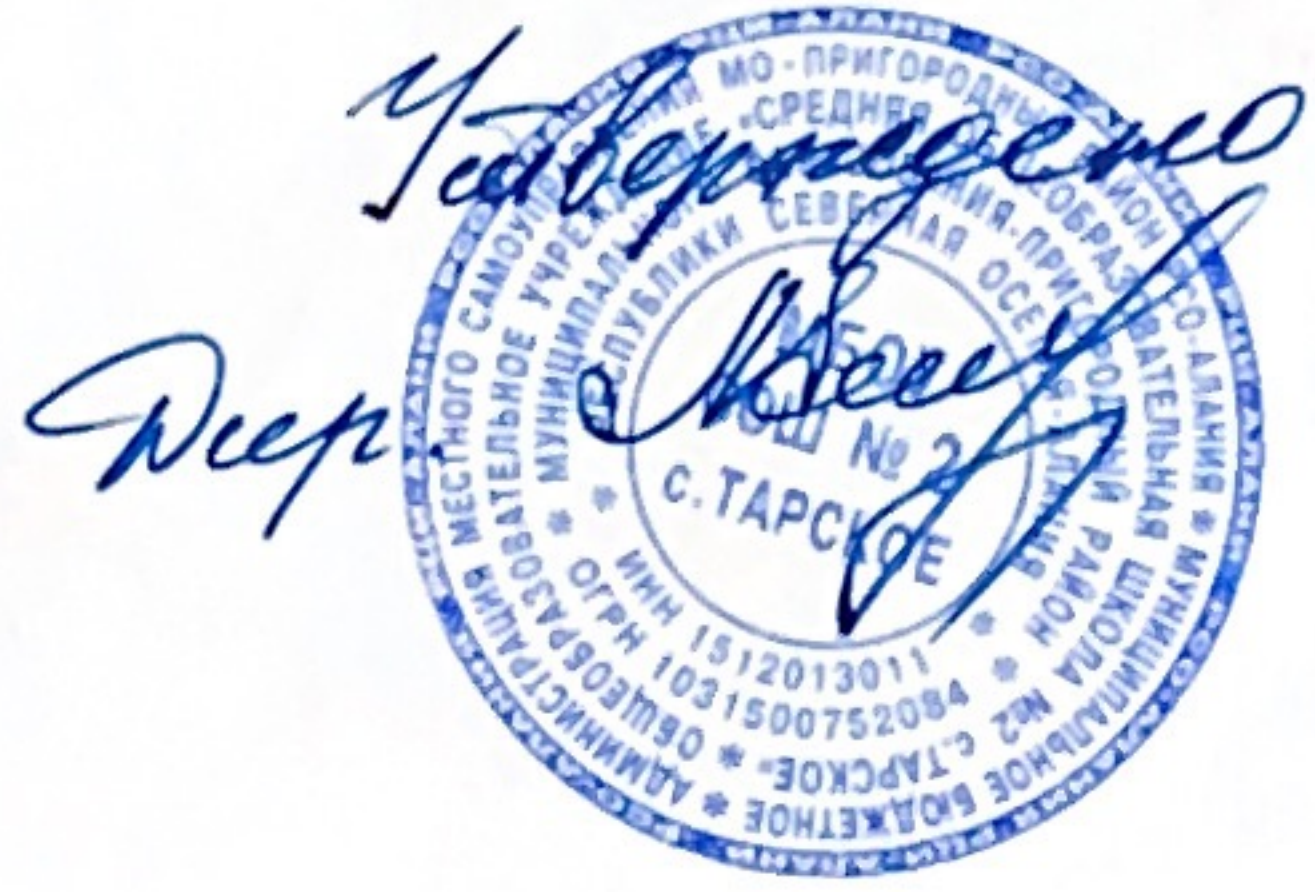 Утверждено
Дир.
АДМИНИСТРАЦИЯ МЕСТНОГО САМОУПРАВЛЕНИЯ МО - ПРИГОРОДНЫЙ РАЙОН РСО-АЛАНИЯ * МУНИЦИПАЛЬНОЕ БЮДЖЕТНОЕ *
ОБЩЕОБРАЗОВАТЕЛЬНОЕ УЧРЕЖДЕНИЕ «СРЕДНЯЯ ОБЩЕОБРАЗОВАТЕЛЬНАЯ ШКОЛА №2 С.ТАРСКОЕ» *
* МУНИЦИПАЛЬНОГО ОБРАЗОВАНИЯ-ПРИГОРОДНЫЙ РАЙОН *
* РЕСПУБЛИКИ СЕВЕРНАЯ ОСЕТИЯ-АЛАНИЯ *
ОГРН 1031500752084
ИНН 1512013011
МБОУ
СОШ № 2
с.ТАРСКОЕ